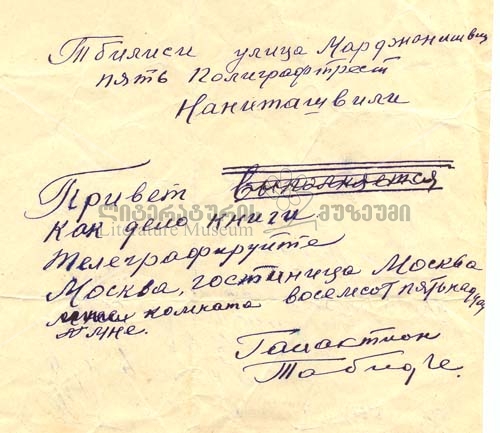 Тбилиси улица Марджанишвил
пять Полиграфтрест
Наниташвили
Привет выполняется
ᲚᲘᲢᲔᲠᲐᲢᲣᲠᲘᲡ ᲛᲣᲖᲔᲣᲛᲘ
Literature Museum
как дело книги
телеграфируйте
Москва, гостиница Москва
комната восемсот пятьнадцат
мне.
Галактион
Табидзе.